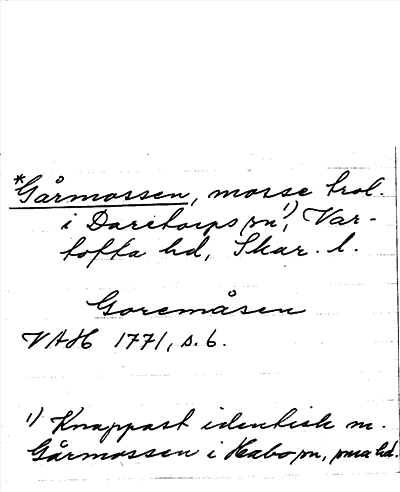 *Gårmossen, mosse trol.
i Daretorps sn¹⁾, Var-
tofta hd, Skar. l.
Goremåsen
VAH 1771, s. 6.
¹⁾ Knappast identisk m.
Gårmossen i Habo sn, sma hd.